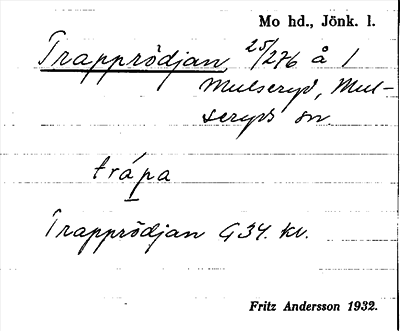 Mo hd., Jönk. l.
Trapprödjan, 25/276 å 1
Mulseryd, Mul-
seryds sn
trápa
Trapprödjan G34. kv.
Fritz Andersson 1932.